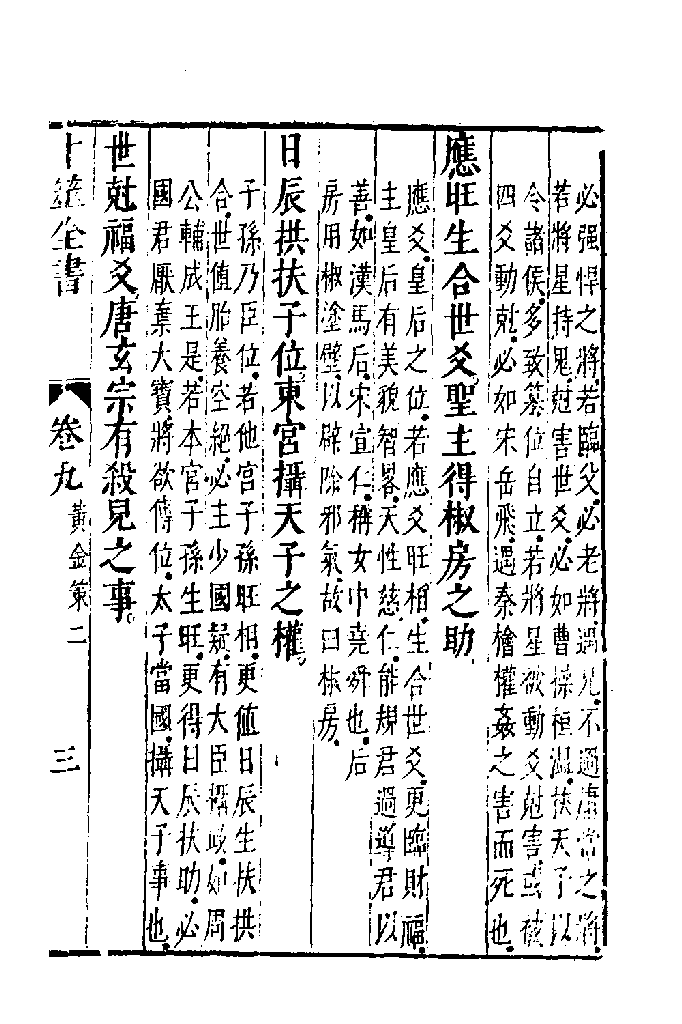 必强悍之將若臨父必老將遇兄不過庸常之將
若將星持鬼尅害世爻必如曹操桓溫扶天子以
令諸侯多致篡位自立若將星被動爻尅害或被
四爻動尅必如宋岳飛遇秦檜權姦之害而死也
應旺生合世爻聖主得椒房之助
應爻皇后之位若應爻旺相生合世爻更臨財福
主皇后有美貌智畧天性慈仁能規君過導君以
善如漢馬后宋宣仁稱女中堯舜也后
房用椒塗壁以辟除邪氣故曰椒房
日辰拱扶子位東宮攝天子之權
子孫乃臣位若他宮子孫旺相更值日辰生扶拱
合世值胎養空絕必主少國疑有大臣攝政如周
公輔成王是若本宮子孫生旺更得日辰扶助必
國君厭棄大寶將欲傳位太子當國攝天子事也
世尅福爻唐玄宗有殺兒之事
卜筮全書 卷九 黃金策二 三